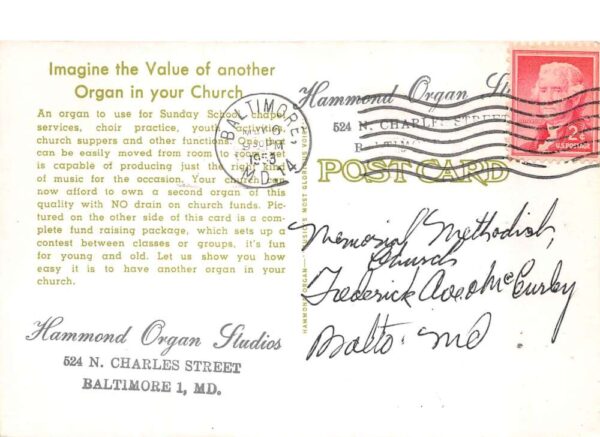 Imagine the Value of another
Organ in your Church
An organ to use for Sunday School chapel
services, choir practice, youth activities,
church suppers and other functions.
can be easily moved from room to room
is capable of producing just the right kind
of music for the occasion. Your church can
now afford to own a second organ of this
quality with NO drain on church funds. Pic-
tured on the other side of this card is a com-
plete fund raising package, which sets up a
contest between classes or groups, it's fun
for young and old. Let us show you how
easy it is to have another organ in your
church.
Hammond Organ Studios
524 N. CHARLES STREET
BALTIMORE 1, MD.
HAMMOND ORGAN—MUSIC'S MOST GLORIOUS VOICE
BALTIMORE,
MD.
Hammond Organ
524 N. CHARLES STREET
POST CARD
2¢
U.S. POSTAGE
Memorial Methodist
Church
Frederick Ave & McCurley
Balto. Md